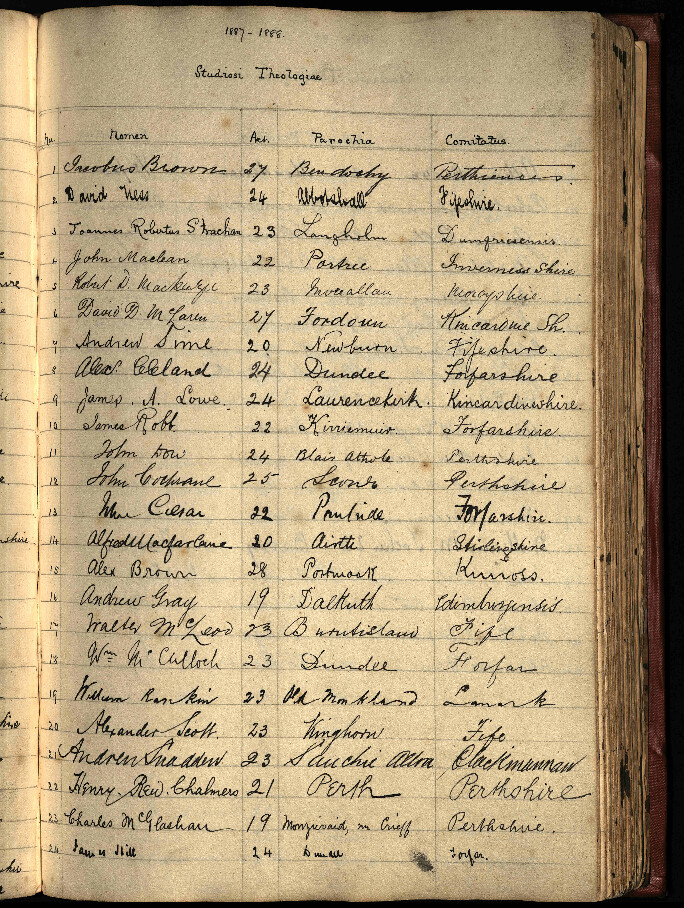 1887-1888.
Studiosi Theologiae
Nu. Nomen Aet. Parochia Comitatus.
1 Jacobus Brown 27 Bendochy Perthiensis.
2 David Ness 24 Abbotshall Fifeshire.
3 Joannes Robertus Strachan 23 Langholm Dumfriesensis
4 John Maclean 22 Portree Inverness Shire
5 Robert D. Mackenzie 23 Inverallan Morayshire
6 David D. McLaren 27 Fordoun Kincardine Sh.
7 Andrew Sime 20 Newburn Fifeshire.
8 Alexr. Cleland 24 Dundee Forfarshire
9 James. A. Lowe. 24 Laurencekirk. Kincardineshire.
10 James Robb. 22 Kirriemuir. Forfarshire
11 John Dow 24 Blair Athole Perthshire
12 John Cochrane 25 Scone Perthshire
13 Wm Caesar 22 Panbride Forfarshire.
14 Alfred Macfarlane 20 Airth Stirlingshire
15 Alex Brown 28 Portmoak Kinross.
16 Andrew Gray 19 Dalkeith Edimburgensis
17 Walter McLeod 23 Burntisland Fife
18 Wm McCulloch 23 Dundee Forfar
19 William Rankin 23 Old Monkland Lanark
20 Alexander Scott. 23 Kinghorn Fife
21 Andrew Snadden 23 Sauchie Alloa Clackmannan
22 Henry. Reid. Chalmers 21 Perth Perthshire
23 Charles McGlashan 19 Monzievaid, nr Crieff Perthshire.
24 James Hill 24 Dundee Forfar.